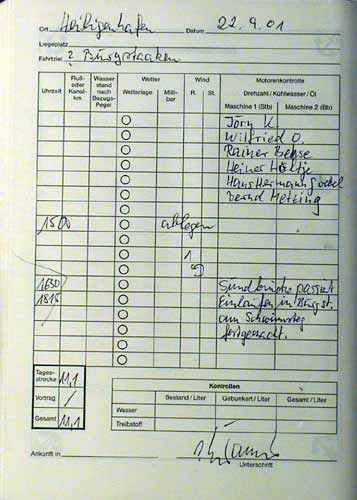 Ort Heiligenhafen Datum 22.9.01
Liegeplatz
Fahrtziel 2 Burgstaaken
Uhrzeit Fluß- oder Kanal-km Wasserstand nach Bezugs-Pegel Wetter Wind Motorenkontrolle
Wetterlage Milli-bar R. St. Drehzahl / Kühlwasser / Öl
Maschine 1 (Stb) Maschine 2 (Bb)
Jörn K.
Wilfried O.
Rainer Behse
Heiner
Hans Hermann
Bernd
1500 ablegen
1
1650 Sundbrücke passiert
1815 Einlaufen in Burgst.
am Schwimmsteg
festgemacht.
Tages-strecke 11,1
Vortrag /
Gesamt 11,1
Kontrollen
Bestand / Liter Gebunkert / Liter Gesamt / Liter
Wasser
Treibstoff
Ankunft in
Unterschrift